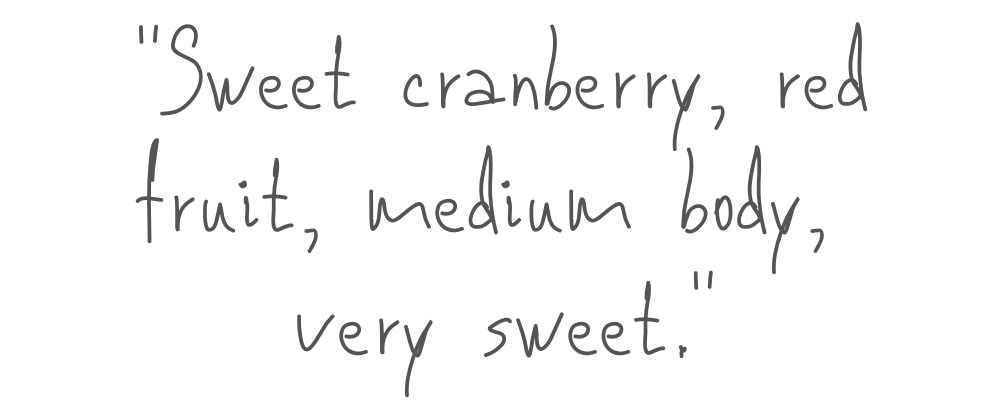 "Sweet cranberry, red
fruit, medium body,
very sweet."